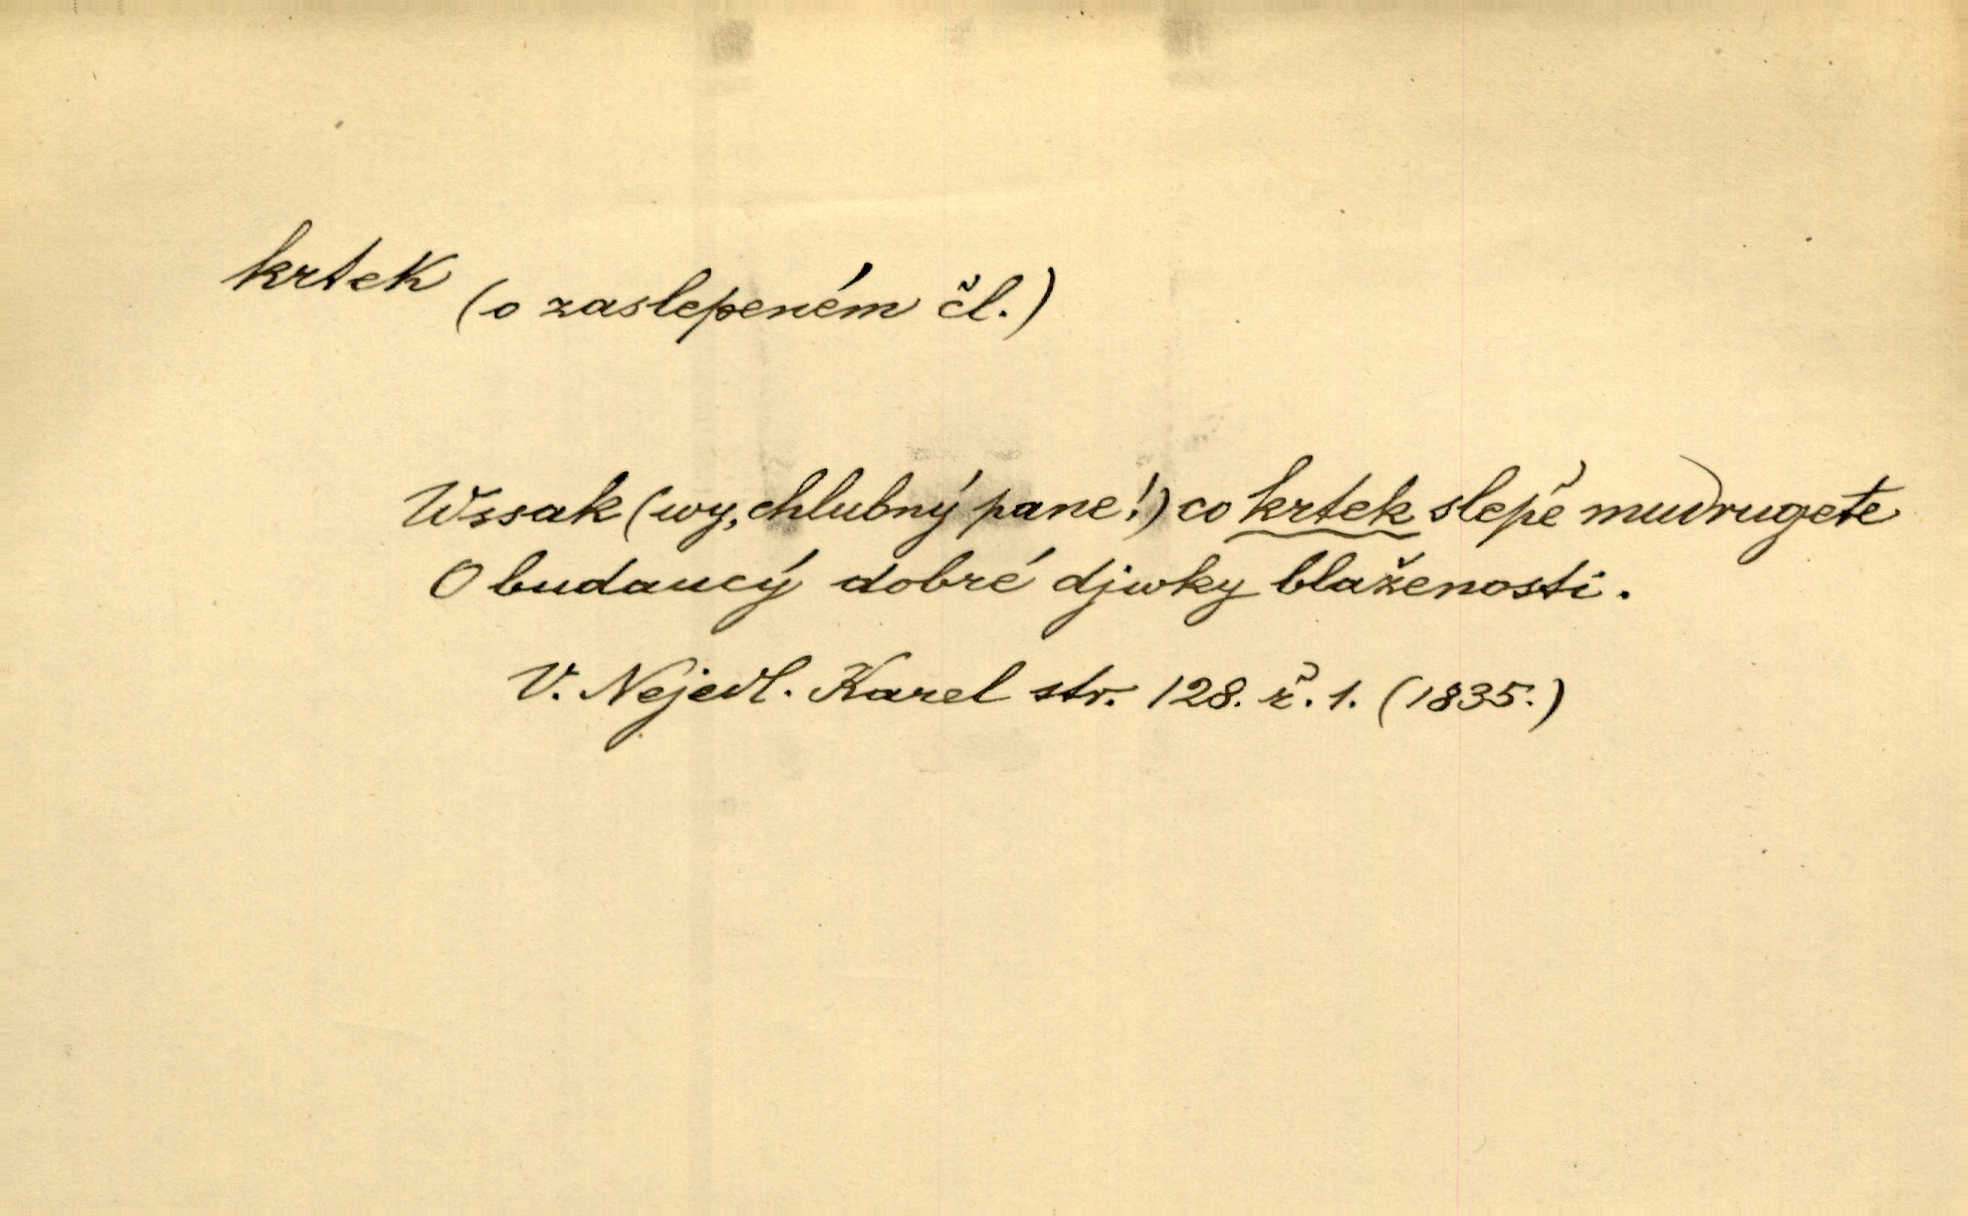 krtek (o zaslepeném čl.)
Wssak (wy, chlubný pane!) co krtek slepě mudrugete
O budaucý dobré djwky blaženosti.
V. Nejedl. Karel str. 128. ř. 1. (1835.)